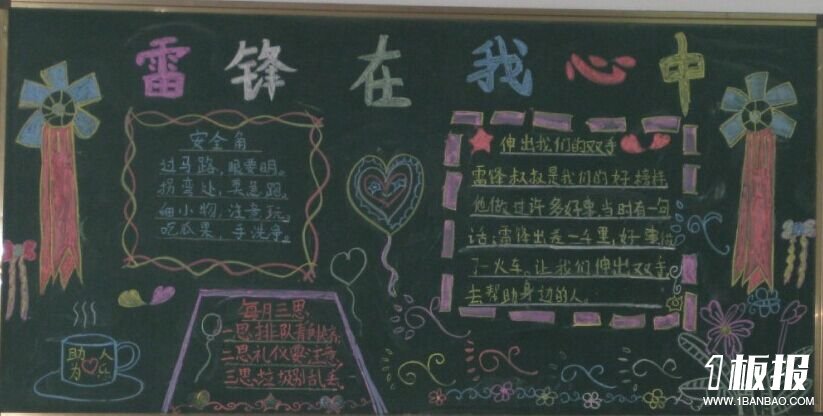 雷锋在我心中
安全角
过马路，眼要明。
拐弯处，莫急跑。
细小物，注意玩。
吃瓜果，手洗净。
伸出我们的双手
雷锋叔叔是我们的好榜样
他做过许多好事，当时有一句
话：雷锋出差一千里，好事做
了一火车。让我们伸出双手，
去帮助身边的人。
每月三思
一思排队
二思礼仪要注意
三思垃圾别乱丢
助人
为乐
1板报
WWW.1BANBAO.COM